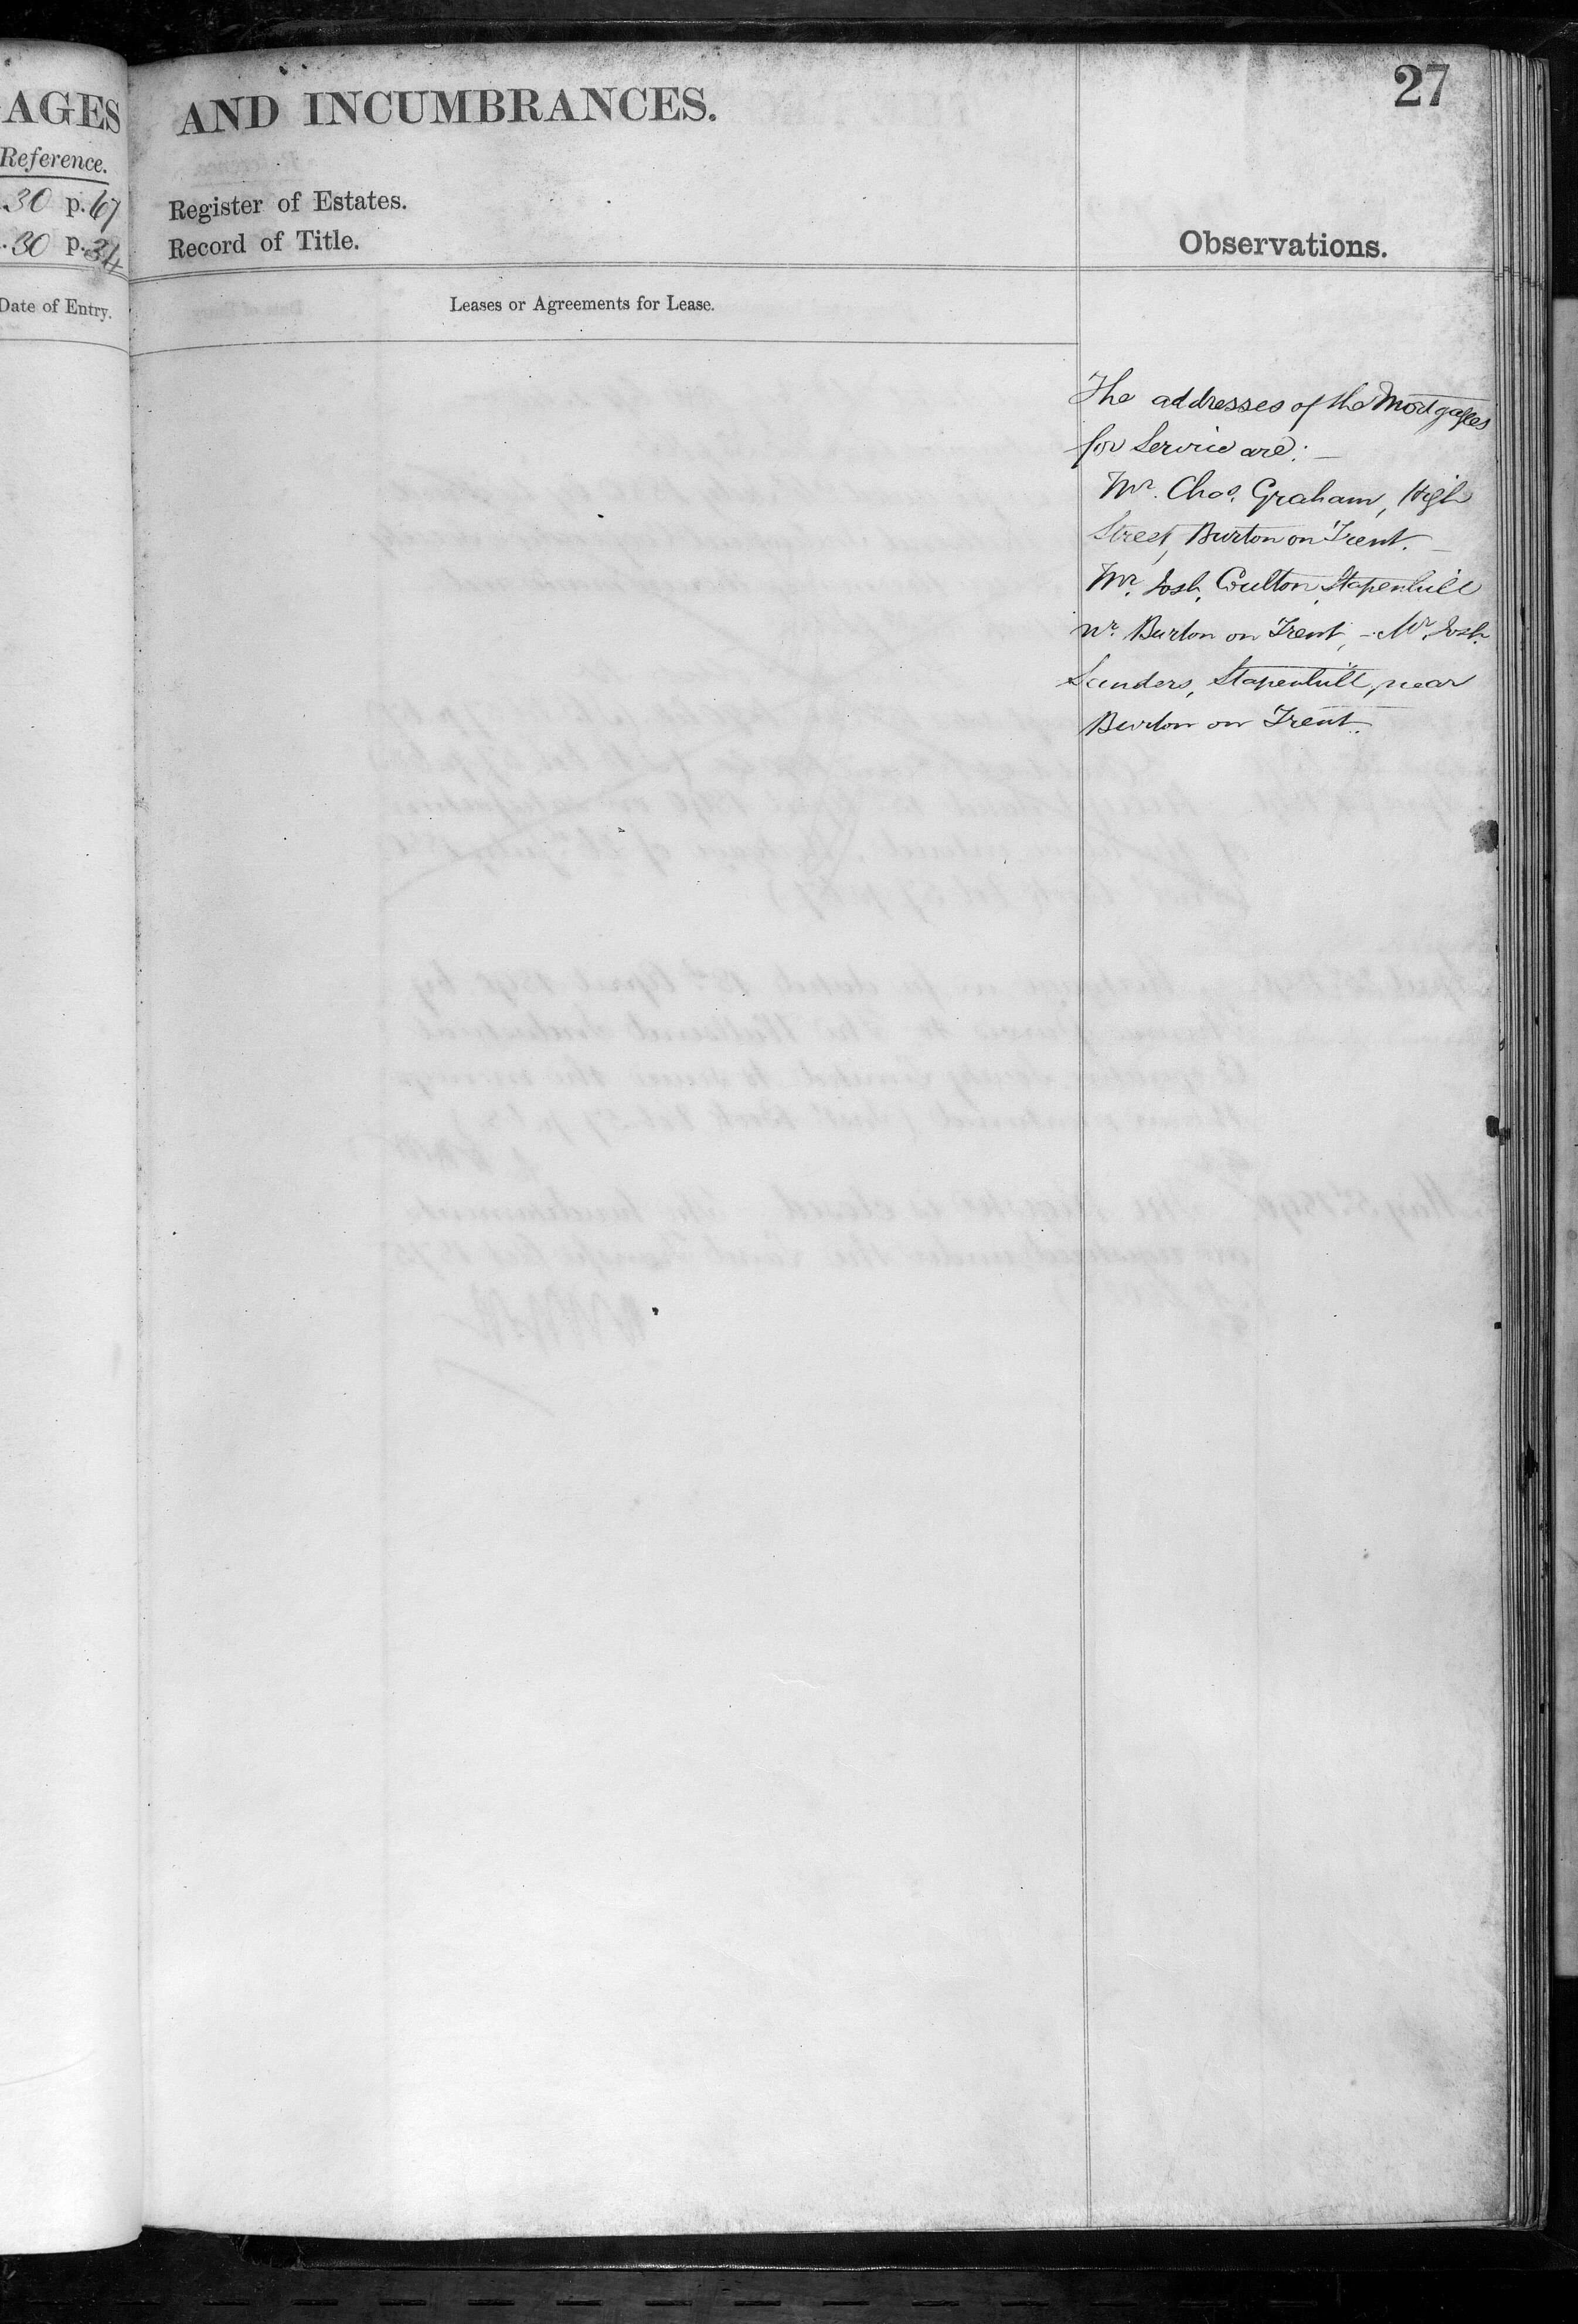 AGES
Reference.
30 p. 67
. 30 p. 34
Date of Entry.
27
AND INCUMBRANCES.
Register of Estates.
Record of Title.
Observations.
Leases or Agreements for Lease.
The addresses of the Mortgagees
for Service are:—
Mr. Chas. Graham, High
Street, Burton on Trent.—
Mr. Josh. Coulton, Stapenhill
nr. Burton on Trent,—Mr. Josh.
Sanders, Stapenhill, near
Burton on Trent.